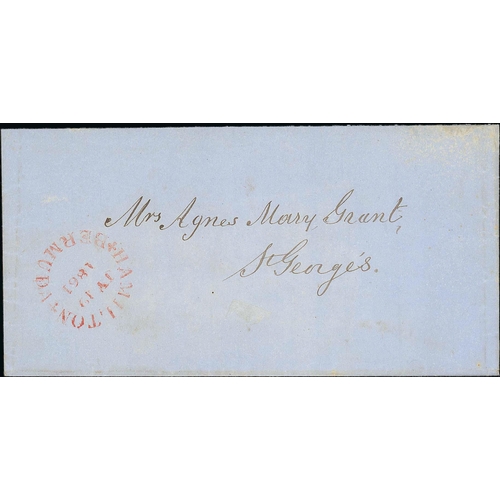 Mrs Agnes Mary Grant,
St George's.
HAMILTON BERMUDA
1861